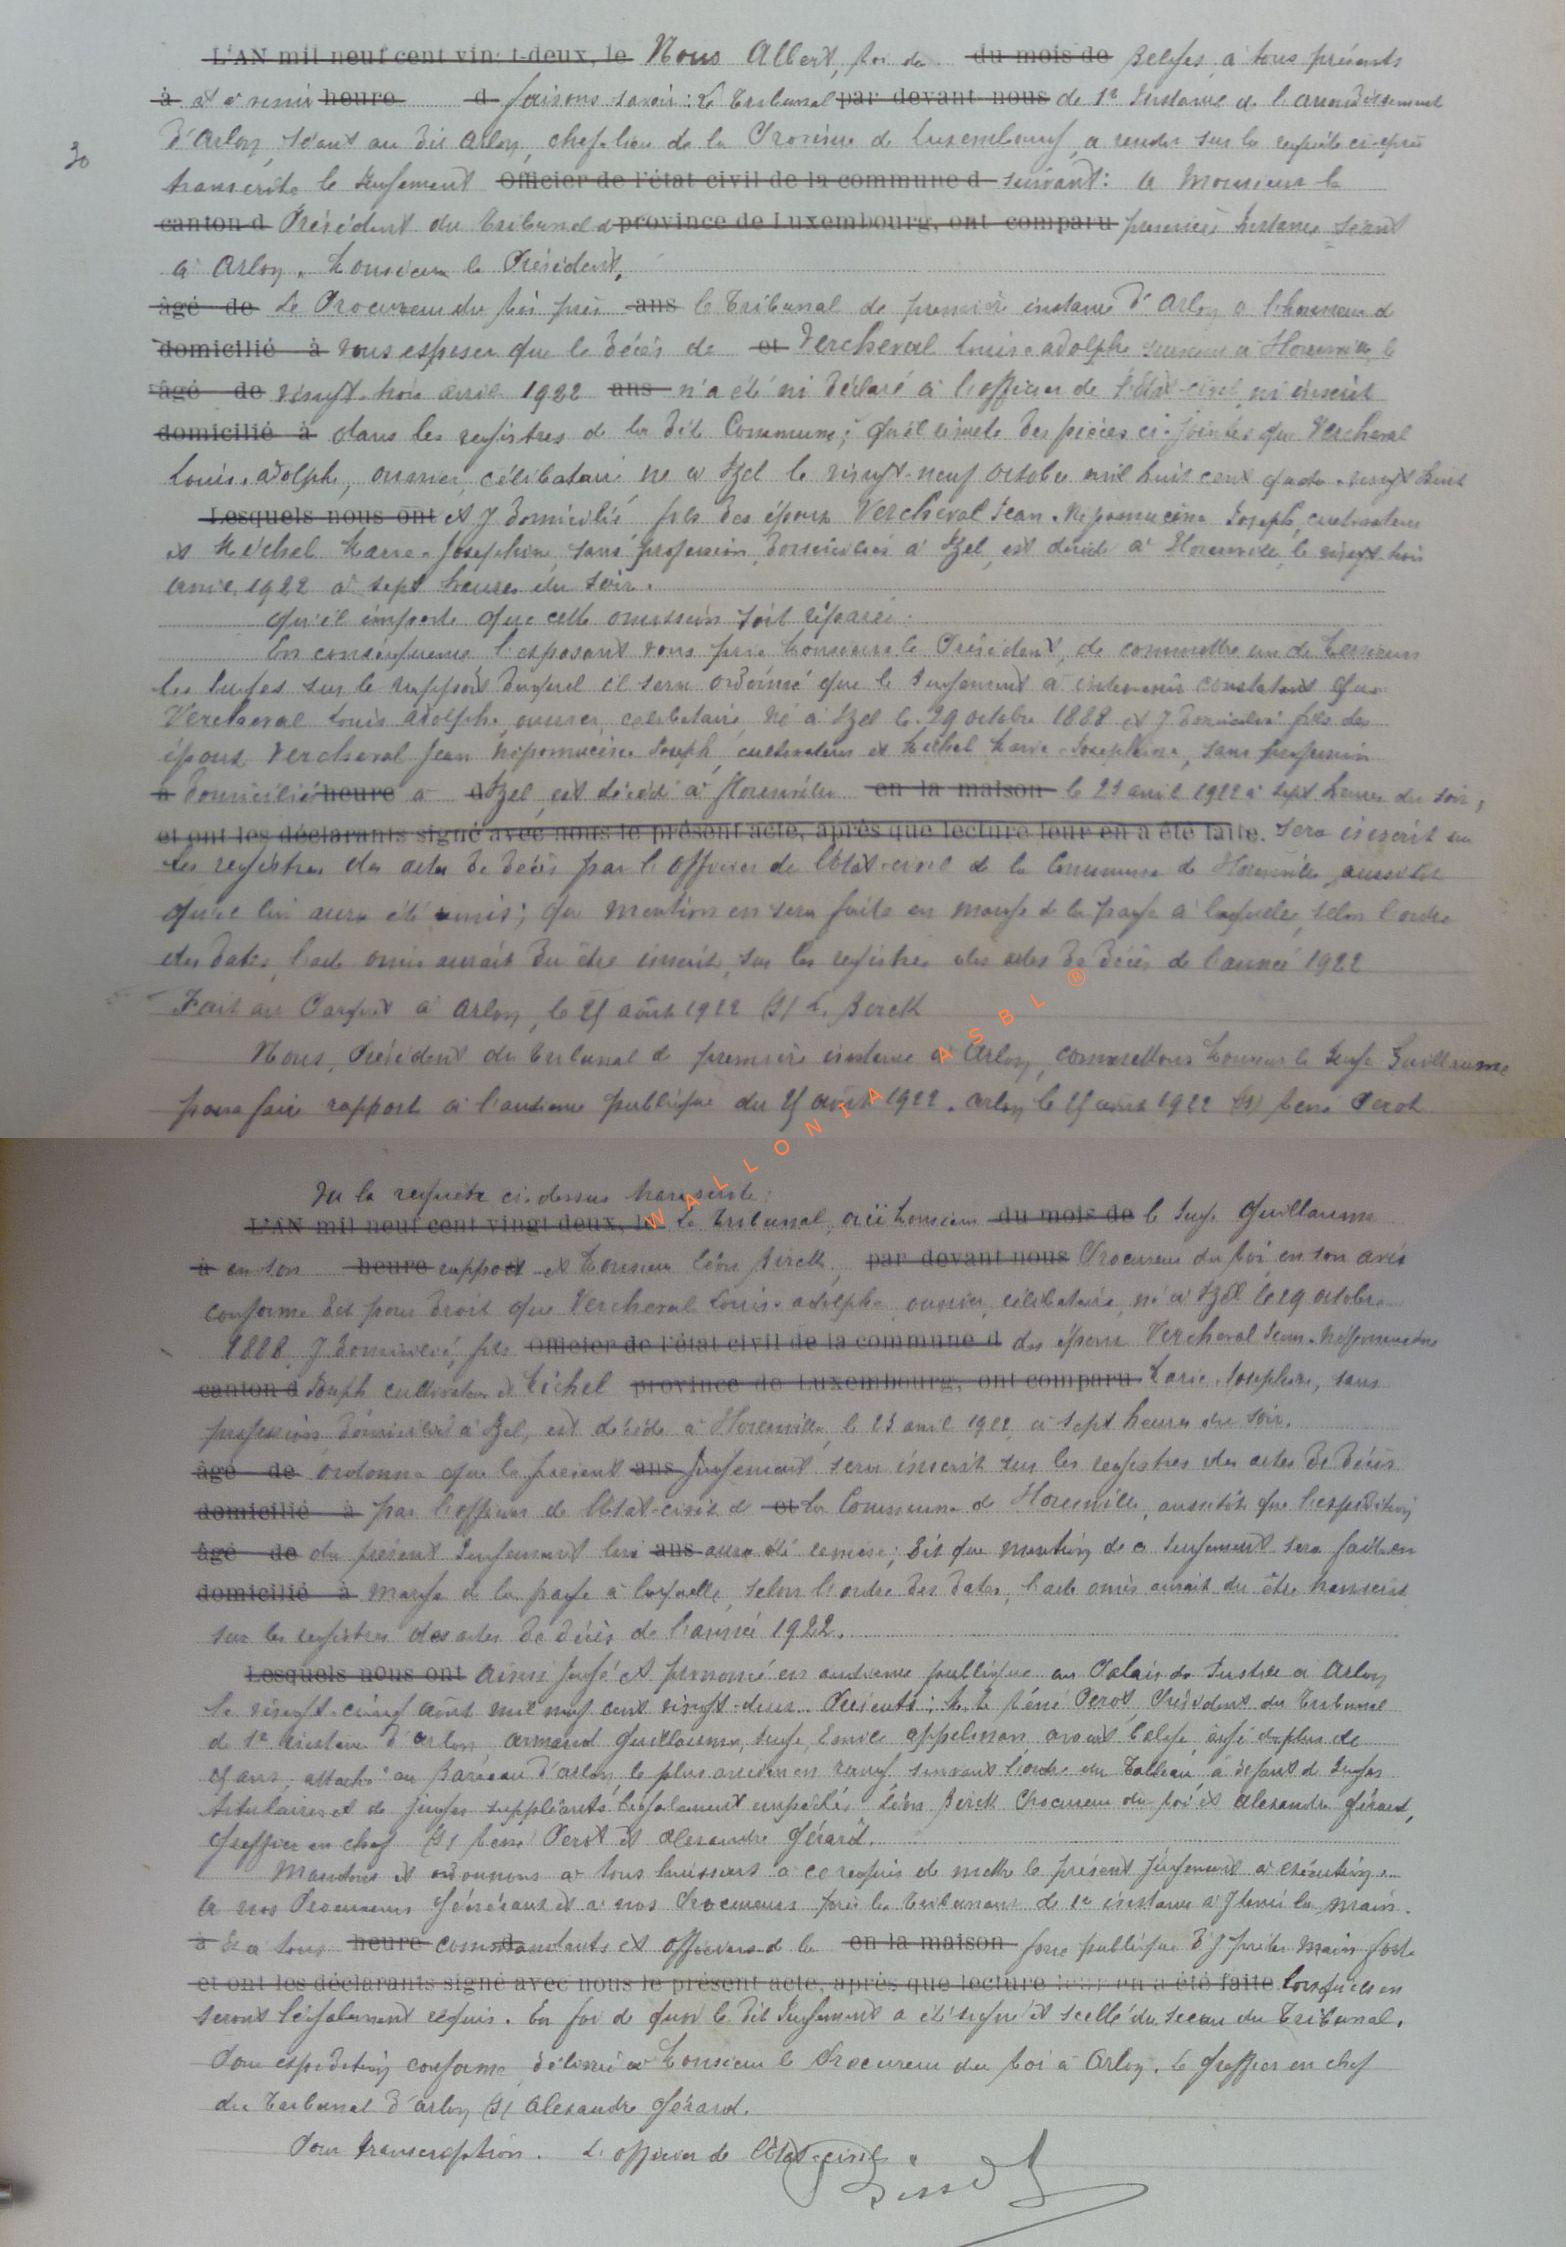 L'AN mil neuf cent vingt-deux, le Nous Albert, roi des du mois de Belges, à tous présents
à et à venir heure d faisons savoir : Le Tribunal par devant nous de 1e Instance de l'arrondissement
30
d'Arlon, séant au dit Arlon, chef-lieu de la Province de Luxembourg, a rendu sur la requête ci-après
transcrite le jugement Officier de l'état civil de la commune d suivant : A Monsieur le
canton d Président du Tribunal d province de Luxembourg, ont comparu première Instance séant
à Arlon. Monsieur le Président,
âgé de Le Procureur du Roi près ans le Tribunal de première instance d'Arlon a l'honneur de
domicilié à vous exposer que le décès de et Vercheval Louis-Adolphe survenu à le
âgé de vingt-trois avril 1922 ans n'a été ni déclaré à l'officier de l'état-civil, ni inscrit
domicilié à dans les registres de la dite Commune ; qu'il résulte des pièces ci-jointes que Vercheval
Louis-Adolphe, ouvrier, célibataire, né à Izel le vingt-neuf octobre mil huit cent quatre-vingt huit
Lesquels nous ont et y domicilié fils des époux Vercheval Jean-Népomucène Joseph, cultivateur
et Michel Marie-Joséphine, sans profession, domiciliés à Izel, est décédé à le vingt-trois
avril 1922 à sept heures du soir.
qu'il importe que cette omission soit réparée.
En conséquence l'exposant vous prie Monsieur le Président, de commettre un de Messieurs
les Juges sur le rapport duquel il sera ordonné que le Jugement à intervenir constatant que
Vercheval Louis Adolphe, ouvrier, célibataire, né à Izel le 29 octobre 1888 et y domicilié fils des
époux Vercheval Jean Népomucène Joseph, cultivateur et Michel Marie-Joséphine, sans profession
à domiciliés heure à d Izel, est décédé à en la maison le 23 avril 1922 à sept heures du soir,
et ont les déclarants signé avec nous le présent acte, après que lecture leur en a été faite. sera inscrit sur
les registres des actes de décès par l'officier de l'état-civil de la Commune de aussitôt
qu'il lui aura été remis ; que mention en sera faite en marge de la page à laquelle, selon l'ordre
des dates, l'acte omis aurait dû être inscrit, sur les registres des actes de décès de l'année 1922
Fait au Parquet à Arlon, le 25 août 1922 (s) L. Berck
Nous, Président du Tribunal de première instance d'Arlon, commettons Monsieur le Juge Guillaume
pour faire rapport à l'audience publique du 25 août 1922. Arlon le 25 août 1922 (s) René Perot
WALLONIA ASBL ®
Vu la requête ci-dessus transcrite :
L'AN mil neuf cent vingt deux, le Le Tribunal, ouï Monsieur du mois de le Juge Guillaume
à en son heure rapport et Monsieur Léon Berck, par devant nous Procureur du Roi en son avis
conforme dit pour droit que Vercheval Louis-Adolphe, ouvrier, célibataire, né à Izel le 29 octobre
1888, y domicilié, fils Officier de l'état civil de la commune d des époux Vercheval Jean-Népomucène
canton d Joseph cultivateur et Michel province de Luxembourg, ont comparu Marie-Joséphine, sans
profession, domiciliés à Izel, est décédé à le 23 avril 1922, à sept heures du soir.
âgé de ordonne que le présent ans jugement sera inscrit sur les registres des actes de décès
domicilié à par l'officier de l'état-civil de et la Commune de aussitôt que l'expédition
âgé de du présent Jugement lui ans aura été remise ; dit que mention de ce Jugement sera faite en
domicilié à marge de la page à laquelle, selon l'ordre des dates, l'acte omis aurait dû être transcrit
sur les registres des actes de décès de l'année 1922.
Lesquels nous ont Ainsi jugé et prononcé en audience publique au Palais de Justice à Arlon
le vingt-cinq août mil neuf cent vingt-deux. Présents : M. M. René Perot, Président du Tribunal
de 1e instance d'Arlon, Armand Guillaume, Juge, Emile Appelman, avocat belge âgé de plus de
ans, attaché au Barreau d'Arlon, le plus ancien en rang suivant l'ordre du Tableau, à défaut de Juges
titulaires et de juges suppléants légalement empêchés, Léon Berck Procureur du Roi et Alexandre Gérard,
Greffier en chef (s) René Perot et Alexandre Gérard.
Mandons et ordonnons à tous huissiers à ce requis de mettre le présent jugement à exécution.
A nos Procureurs Généraux et à nos Procureurs près les Tribunaux de 1e instance d'y tenir la main.
à Et à tous heure commandants et officiers de la en la maison force publique d'y prêter main forte
et ont les déclarants signé avec nous le présent acte, après que lecture leur en a été faite lorsqu'ils en
seront légalement requis. En foi de quoi le dit Jugement a été signé et scellé du sceau du Tribunal.
Pour expédition conforme, délivrée à Monsieur le Procureur du Roi à Arlon. Le Greffier en chef
du Tribunal d'Arlon (s) Alexandre Gérard.
Pour transcription. L'officier de l'état-civil.